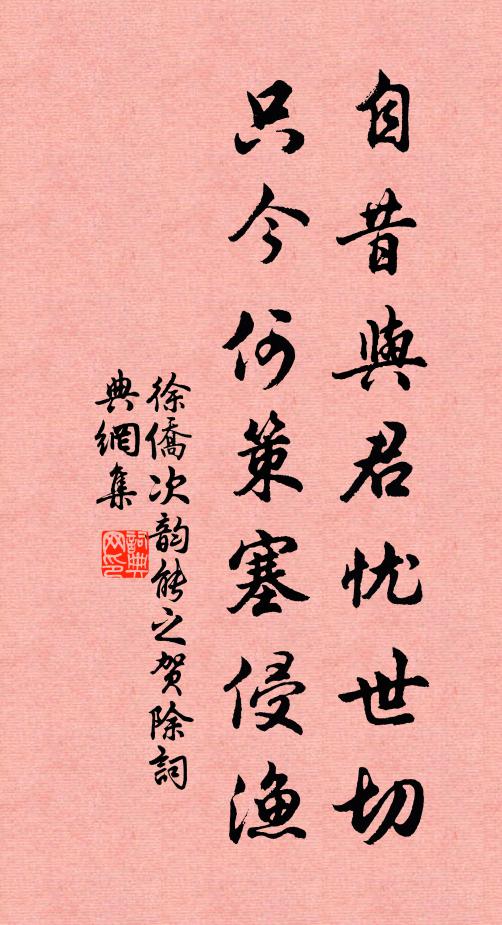 自昔與君忧世切
只今何策塞侵渔
徐僑次韵能之贺除詞
典網集
詞典网印